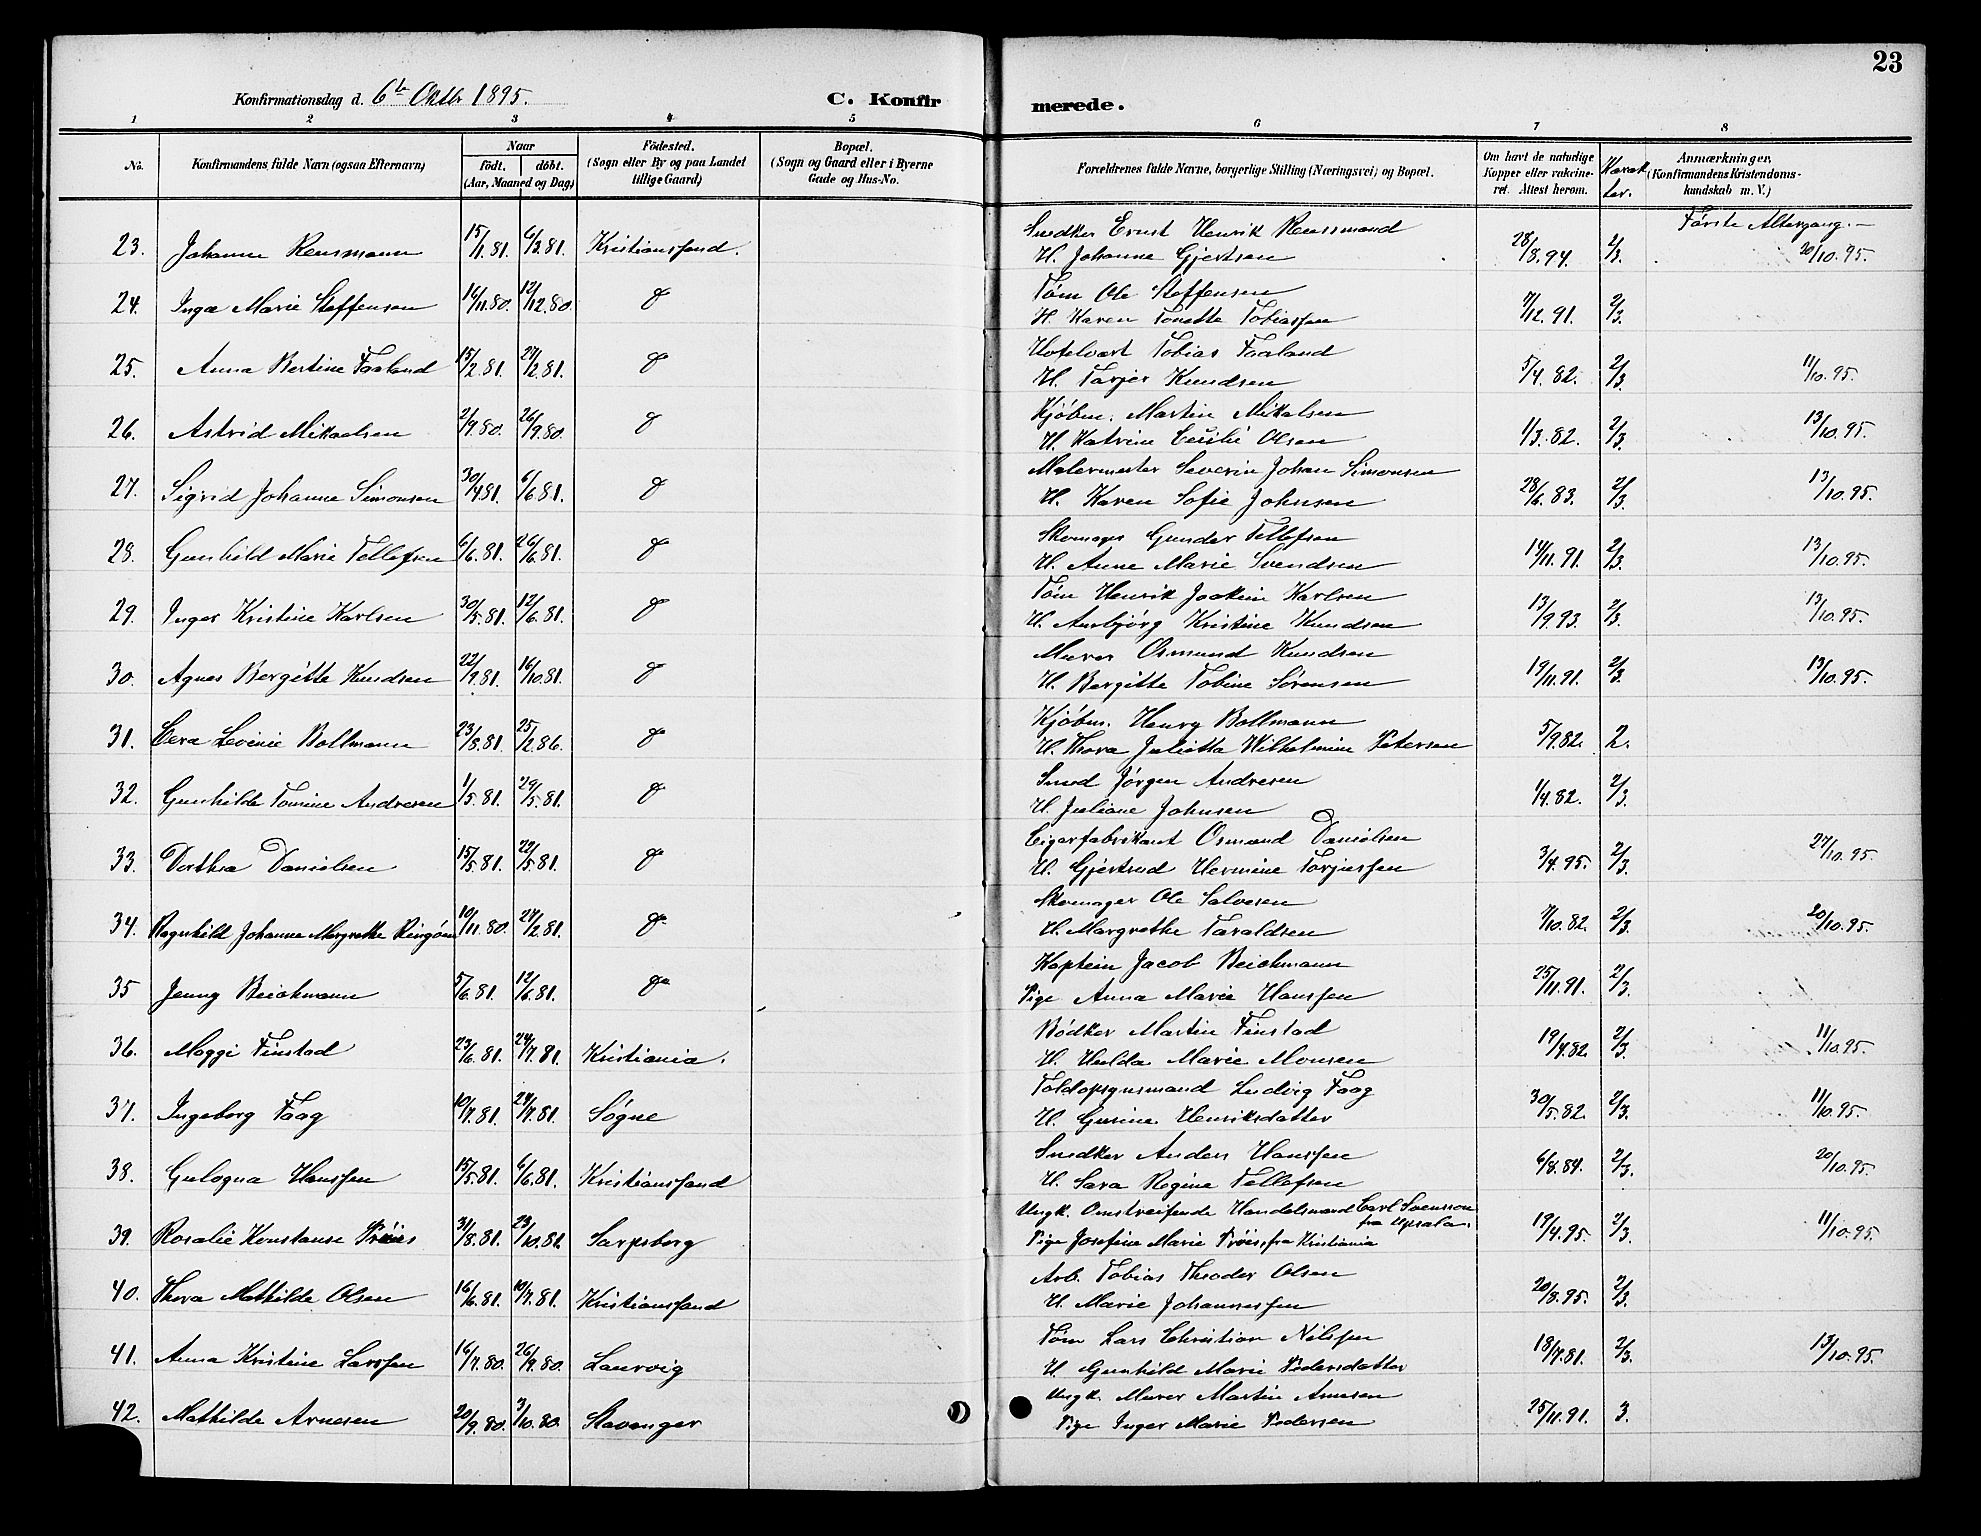 23
Konfirmationsdag d. 6te Oktbr 1895.
C. Konfirmerede.
1 2 3 4 5 6 7 8
No.
Konfirmandens fulde Navn (ogsaa Efternavn)
Naar
födt. döbt.
(Aar, Maaned og Dag)
Födested.
(Sogn eller By og paa Landet
tillige Gaard)
Bopæl.
(Sogn og Gaard eller i Byerne
Gade og Hus-No.
Forældrenes fulde Navne, borgerlige Stilling (Næringsvei) og Bopæl.
Om havt de naturlige
Kopper eller vakcine-
ret. Attest herom.
Karak-
ter.
Anmærkninger,
(Konfirmandens Kristendoms-
kundskab m. V.)
Første Altergang. —
23. Johanne Rensmann 15/1.81. 6/3.81. Kristianssand. Snedker Ernst Henrik Rensmand 28/8.94. 2/3. 20/10.95.
H. Johanne Gjertsen
24. Inga Marie Steffensen 16/11.80. 12/12.80. d Tøm Ole Steffensen 7/12.91. 2/3.
H. Karen Tonette Tobiassen
25. Anna Bertine Faaland 15/2.81. 27/2.81. d Hotelvært Tobias Faaland 5/4.82. 2/3. 11/10.95.
H. Torjer Knudsen
26. Astrid Mikaelsen 2/9.80. 26/9.80. d Kjøbm. Martin Mikalsen 1/3.82. 2/3. 13/10.95.
H. Katrine Cecilie Olsen
27. Sigrid Johanne Simonsen 30/4.81. 6/6.81. d Malermester Severin Johan Simonsen 28/6.83. 2/3. 13/10.95.
H. Karen Sofie Johnsen
28. Gunhild Marie Tellefsen 6/6.81. 26/6.81. d Skomager Gunder Tellefsen 14/11.91. 2/3. 13/10.95.
H. Anne Marie Svendsen
29. Inger Kristine Karlsen 30/5.81. 12/6.81. d Tøm Henrik Joakim Karlsen 13/9.93. 2/3. 13/10.95.
H. Anbjørg Kristine Knudsen
30. Agnes Bergitte Knudsen 22/9.81. 16/10.81. d Murer Osmund Knudsen 19/11.91. 2/3. 13/10.95.
H. Bergitte Tobine Sørensen
31. Levine Bollmann 23/8.81. 25/2.86. d Kjøbm. Henry Bollmann 5/9.82. 2.
H. Thora Juliette Wilhelmine Petersen
32. Gunhilde Tomine Andresen 1/5.81. 29/5.81. d Smed Jørgen Andresen 1/4.82. 2/3.
H. Juliane Johnsen
33. Dorthea Danielsen 15/5.81. 22/5.81. d Cigarfabrikant Osmund Danielsen 3/4.95. 2/3. 27/10.95.
H. Gjertrud Hermine Torjussen
34. Ragnhild Johanne Margrethe 10/11.80. 27/2.81. d Skomager Ole Salvesen 7/10.82. 2/3. 20/10.95.
H. Margrethe Taraldsen
35 Jenny Beichmann 5/6.81. 12/6.81. d Kaptein Jacob Beichmann 25/11.91. 2/3.
Pige Anna Marie Hanssen
36. Maggi Finstad 23/6.81. 24/7.81. Kristiania. Bødker Martin Finstad 19/4.82. 2/3. 11/10.95.
H. Hulda Marie Monsen
37. Ingeborg Faag 10/7.81. 24/7.81. Søgne Toldopsynsmand Ludvig Faag 30/5.82. 2/3. 11/10.95.
H. Gurine Henriksdatter
38. Gulogna Hanssen 15/5.81. 6/6.81. Kristianssand Snedker Anders Hanssen 6/8.84. 2/3. 20/10.95.
H. Sara Regine Tellefsen
39. Rosalie Konstanse 31/8.81. 23/10.81. Sarpsborg Ungk. Omstreifende Handelsmand Carl Svensson fra Upsala. 19/4.95. 2/3. 11/10.95.
Pige Josefine Marie fra Kristiania
40. Thora Mathilde Olsen 16/6.81. 10/7.81. Kristianssand Arb. Tobias Theodor Olsen 20/8.95. 2/3.
H. Marie Johannessen
41. Anna Kristine Larssen 16/7.80. 26/9.80. Laurvig Tøm Lars Christian Nilssen 18/7.81. 2/3. 13/10.95.
H. Gunhild Marie Pedersdatter
42. Mathilde Arnesen 20/9.80. 3/10.80. Stavanger Ungk. Murer Martin Arnesen 25/11.91. 3.
Pige Inger Marie Pedersen